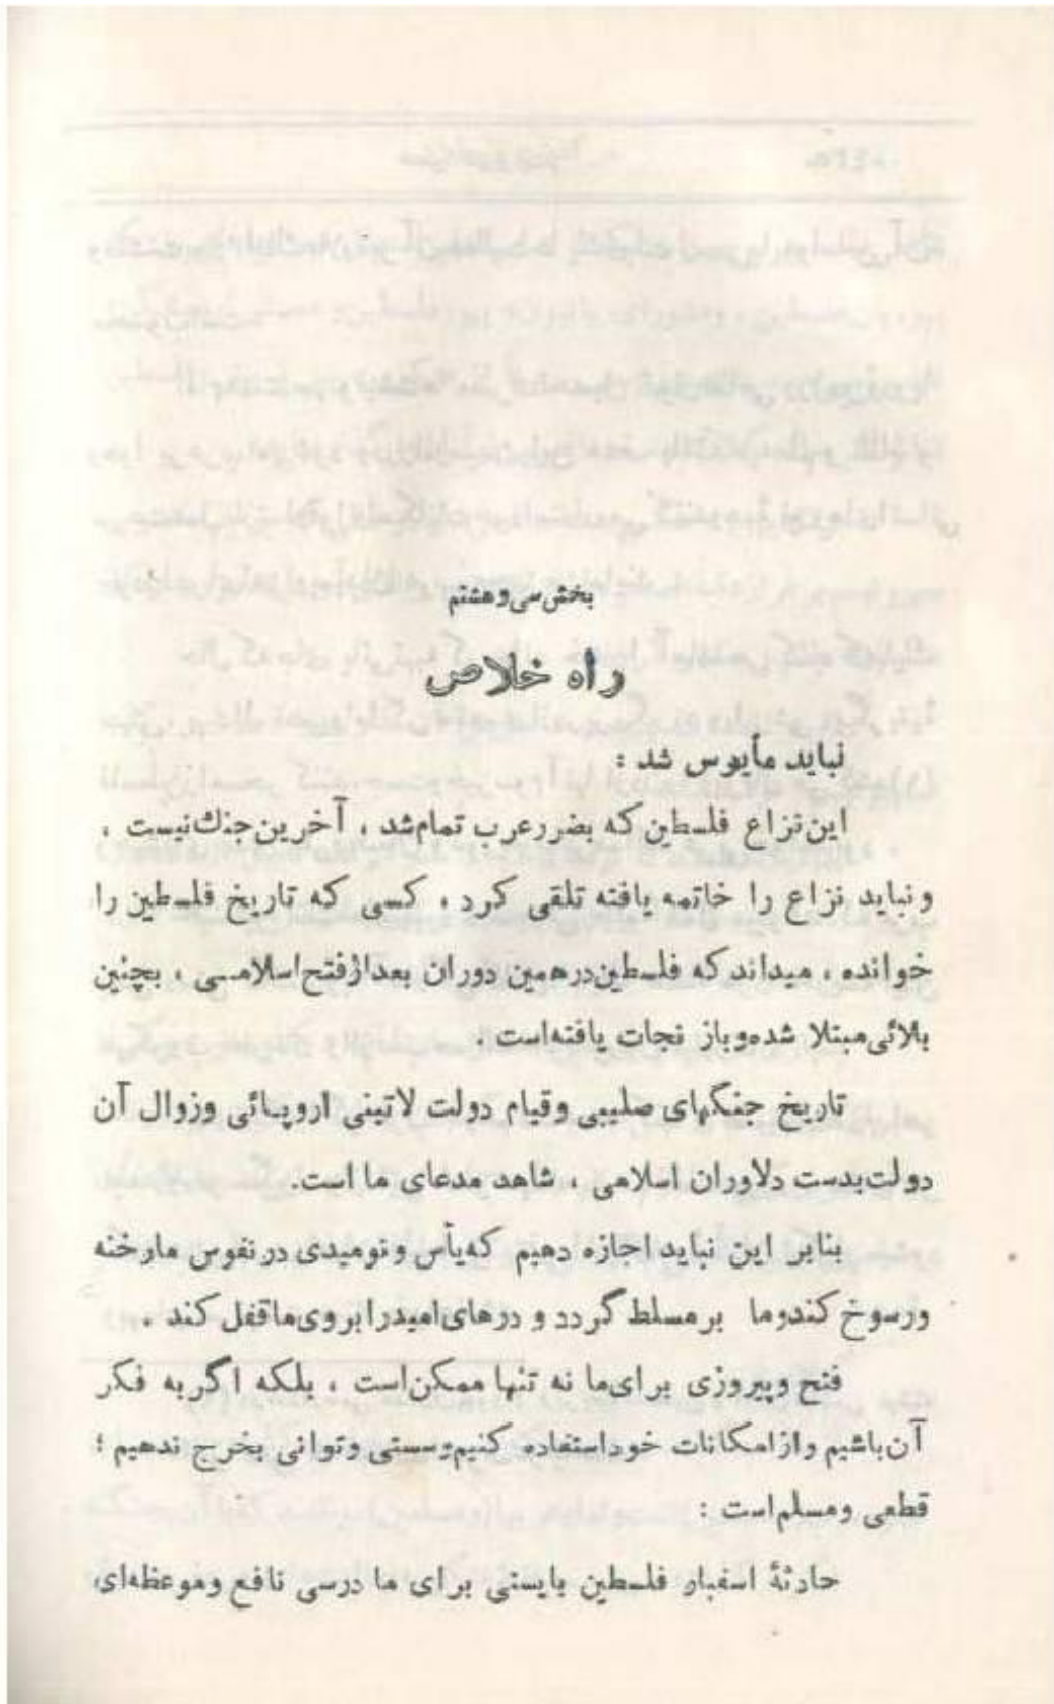 بخش سی و هشتم
راه خلاص
نباید مأیوس شد :
این نزاع فلسطین که بضرر عرب تمام شد ، آخرین جنك نیست ،
و نباید نزاع را خاتمه یافته تلقی کرد ، کسی که تاریخ فلسطین را
خوانده ، میداند که فلسطین در همین دوران بعد از فتح اسلامی ، بچنین
بلائی مبتلا شده و باز نجات یافته است .
تاریخ جنگهای صلیبی و قیام دولت لاتینی اروپائی و زوال آن
دولت بدست دلاوران اسلامی ، شاهد مدعای ما است.
بنابر این نباید اجازه دهیم که یأس و نومیدی در نفوس ما رخنه
و رسوخ کند و ما بر مسلط گردد و درهای امید را بروی ما قفل کند .
فتح و پیروزی برای ما نه تنها ممکن است ، بلکه اگر به فکر
آن باشیم و از امکانات خود استفاده کنیم و سستی و توانی بخرج ندهیم ؛
قطعی و مسلم است :
حادثهٔ اسفبار فلسطین بایستی برای ما درسی نافع و موعظه‌ای